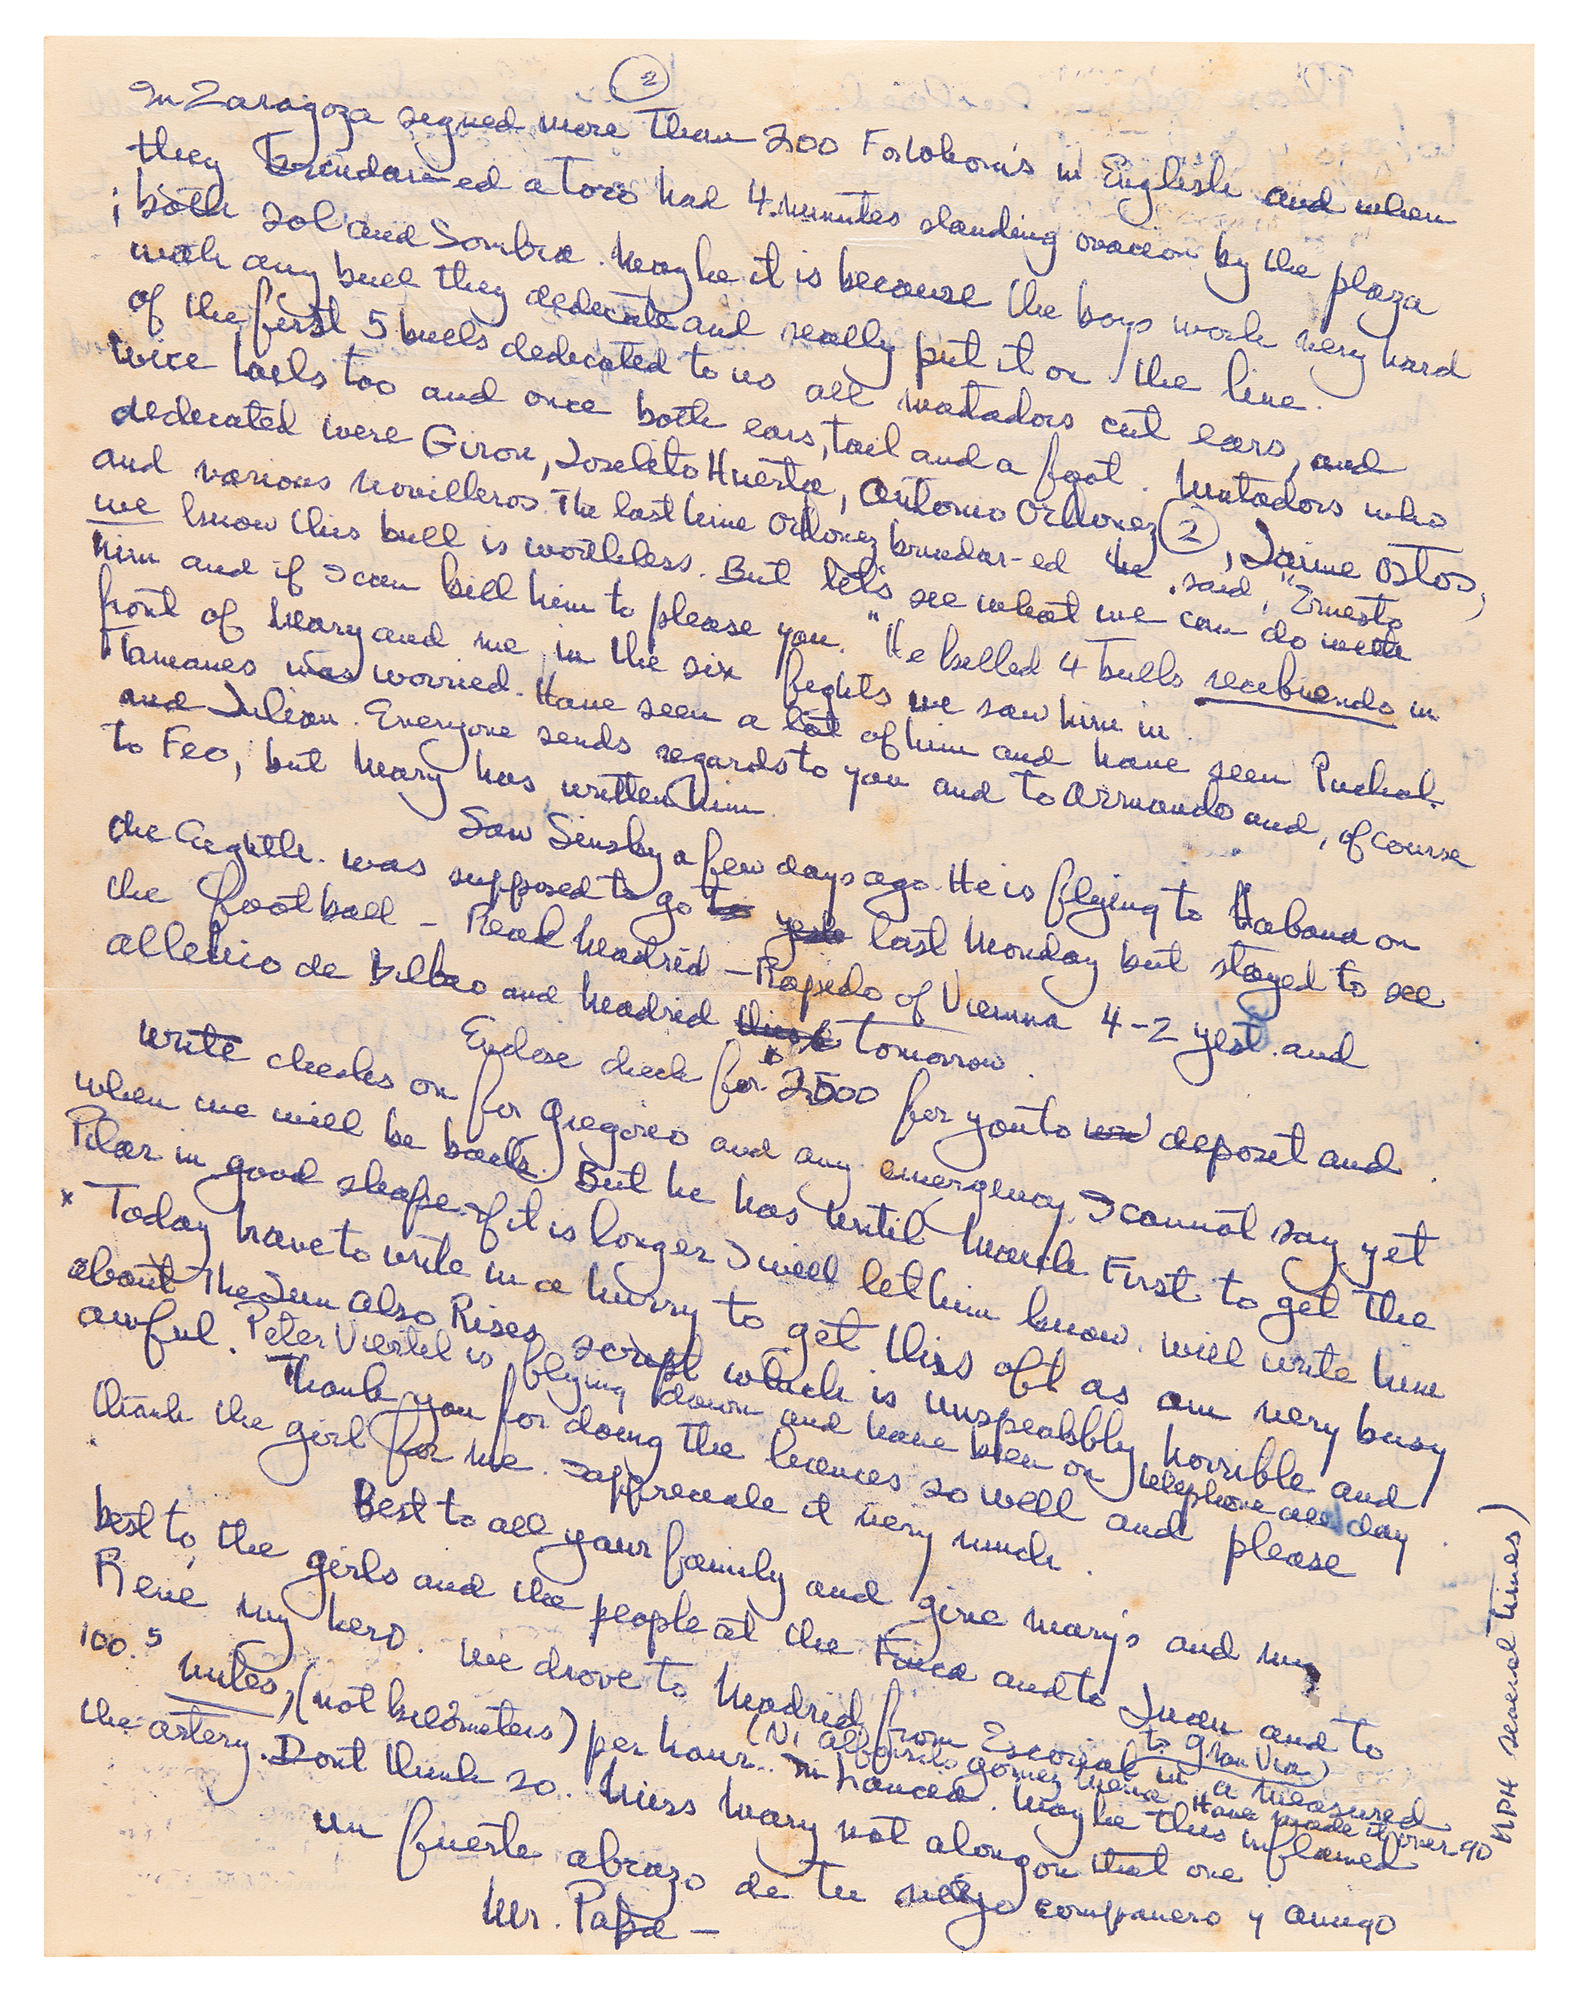 2
In Zaragoza signed more than 200 For Whom's in English and when
they brindar-ed a Toro had 4 minutes standing ovacion by the plaza
; both sol and Sombra. Maybe it is because the boys work very hard
with any bull they dedicate and really put it on the line.
of the first 5 bulls dedicated to us all matadors cut ears, and
twice tails too and once both ears, tail and a foot. Matadors who
dedicated were Giron, Joselito Huerta, Antonio Ordonez (2), Jaime Ostos,
and various novilleros. The last time Ordonez brindar-ed he said, "Ernesto
we know this bull is worthless. But let's see what we can do with
him and if I can kill him to please you." He killed 4 bulls recibiendo in
front of Mary and me in the six fights we saw him in.
Tamames was worried. Have seen a lot of him and have seen
and Julian. Everyone sends regards to you and to Armando and, of course
to Feo, but Mary has written him.
Saw Sinsky a few days ago. He is flying to Habana on
the Eighth. was supposed to go to yest last Monday but stayed to see
the football - Real Madrid - Rapido of Vienna 4-2 yest. and
alletico de Bilbao and Madrid tomorrow.
Enclose check for $2500 for you to deposit and
write checks on for Gregorio and any emergency. I cannot say yet
when we will be back. But he has until March First to get the
Pilar in good shape. If it is longer I will let him know. will write him
x Today have to write in a hurry to get this off as am very busy
about The Sun Also Rises script which is unspeakbbly horrible and
awful. Peter Viertel is flying down and have been on telephone all day.
Thank you for doing the licences so well and please
thank the girl for me. I appreciate it very much.
Best to all your family and give Mary's and my
best to, the girls and the people at the Finca and to Juan and to
Rene my hero. We drove to Madrid from Escorial to Gran Via) in a measured
100.5 miles, (not kilometers) per hour. (Ni Alfonsito Gomez Mena. Have made it over 90
MPH several times)
in Lancia. Maybe this inflamed
the artery. Dont think so. Miss Mary not along on that one.
un fuerte abrazo de tu viejo companero y amigo
Mr. Papa -